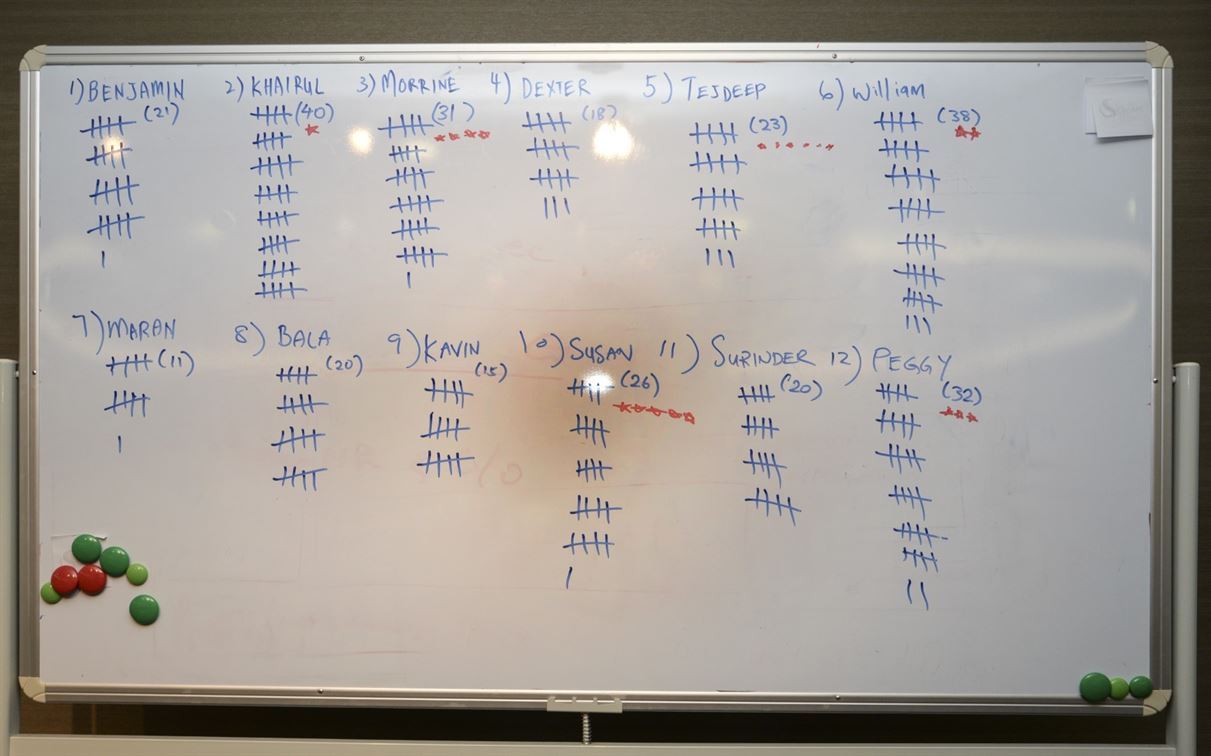 1) BENJAMIN
(21)
2) KHAIRUL
(40)
3) MORRINE
(31)
4) DEXTER
(18)
5) TEJDEEP
(23)
6) William
(38)
7) MARAN
(11)
8) BALA
(20)
9) KAVIN
(15)
10) SUSAN
(26)
11) SURINDER
(20)
12) PEGGY
(32)